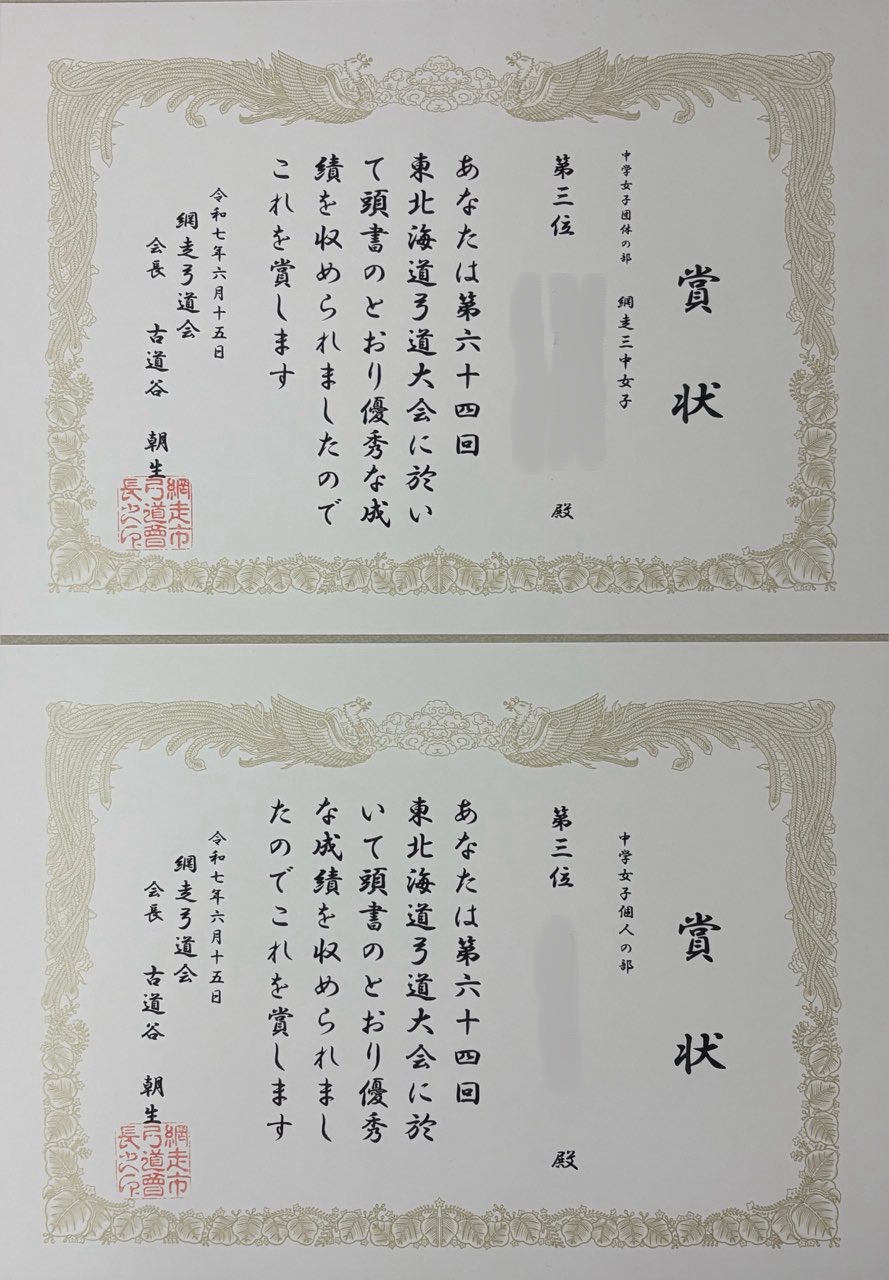 賞状
中学女子団体の部 網走三中女子
第三位
殿
あなたは第六十四回
東北海道弓道大会に於い
て頭書のとおり優秀な成
績を収められましたので
これを賞します
令和七年六月十五日
網走弓道会
会長 古道谷 朝生
網走市
弓道會
長之印
賞状
中学女子個人の部
第三位
殿
あなたは第六十四回
東北海道弓道大会に於
いて頭書のとおり優秀
な成績を収められまし
たのでこれを賞します
令和七年六月十五日
網走弓道会
会長 古道谷 朝生
網走市
弓道會
長之印